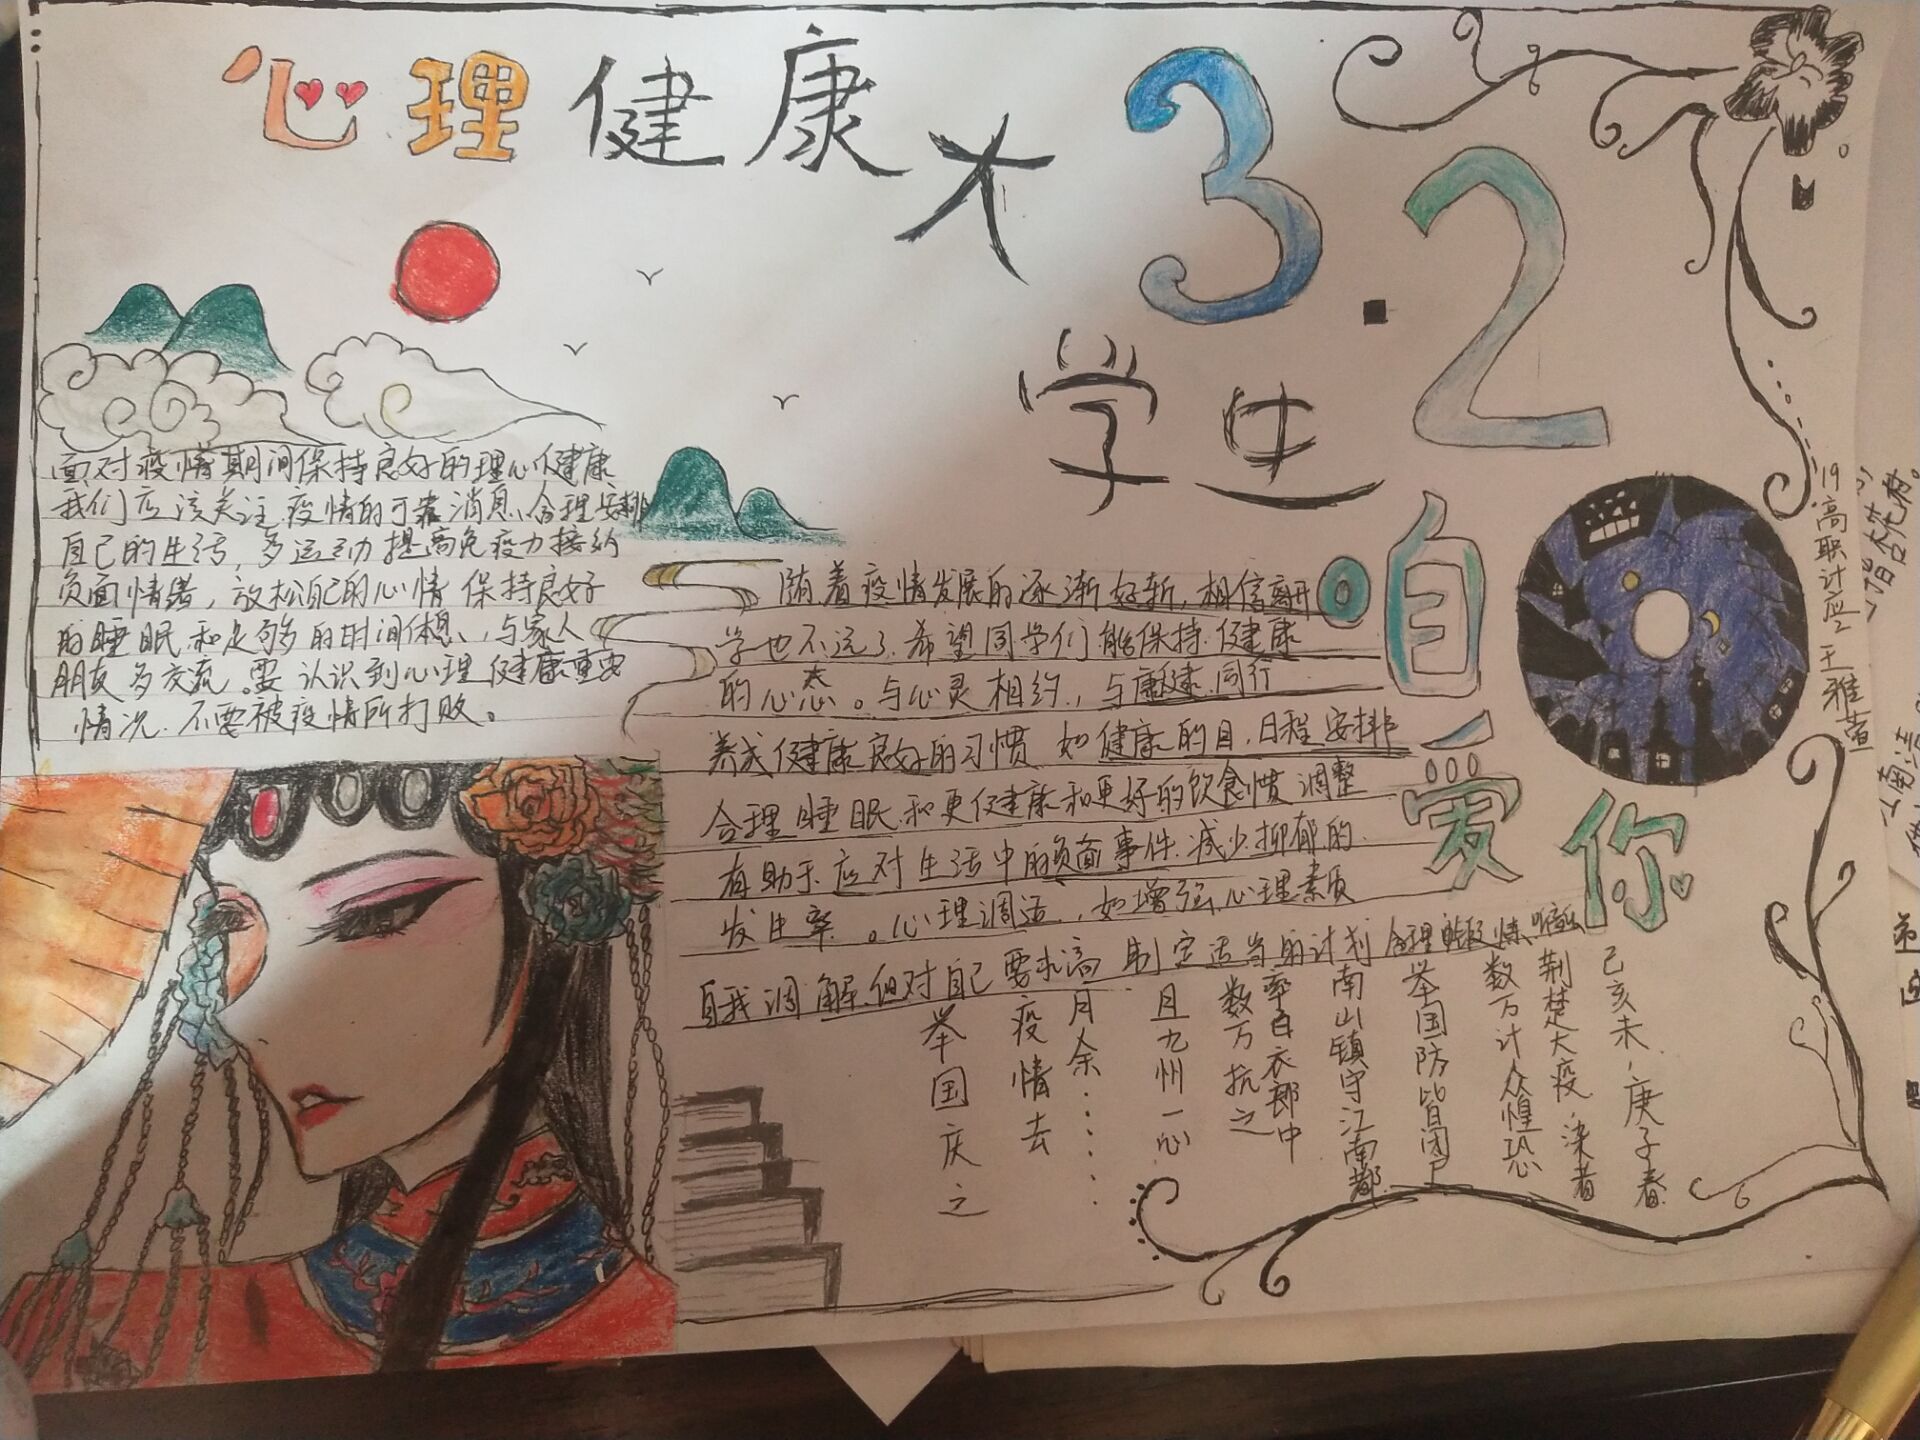 心理健康大
学生
3.2
自
爱
你
面对疫情期间保持良好的理心健康
我们应该关注疫情的可靠消息、合理安排
自己的生活，多运动提高免疫力接纳
负面情绪，放松自己的心情保持良好
的睡眠和足够的时间休息、与家人
朋友多交流。要认识到心理健康重要
情况.不要被疫情所打败。
随着疫情发展的逐渐好斩，相信离开
学也不远了.希望同学们能保持健康
的心态。与心灵相约，与康健同行
养成健康良好的习惯 如健康的目,日程安排
合理睡眠和更健康和更好的饮食惯调整
有助于应对生活中的负面事件.减少抑郁的
发生率。心理调适，如增强心理素质
自我调解.但对自己要求高 制定适当的计划 合理
己亥末,庚子春
荆楚大疫,染者
数万计众惶恐
举国防皆闭户
南山镇守江南都
率白衣郎中
数万抗之
且九州一心
月余......
疫情去
举国庆之
19高职计应2王雅